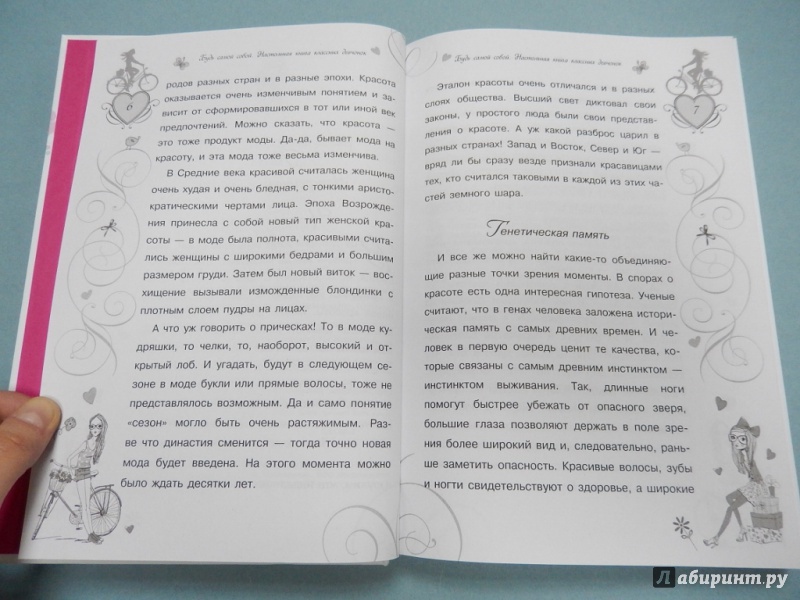 Будь самой собой. Настольная книга классных девчонок
6
родов разных стран и в разные эпохи. Красота
оказывается очень изменчивым понятием и за-
висит от сформировавшихся в тот или иной век
предпочтений. Можно сказать, что красота —
это тоже продукт моды. Да-да, бывает мода на
красоту, и эта мода тоже весьма изменчива.
В Средние века красивой считалась женщина
очень худая и очень бледная, с тонкими аристо-
кратическими чертами лица. Эпоха Возрожде-
ния принесла с собой новый тип женской кра-
соты — в моде была полнота, красивыми счита-
лись женщины с широкими бедрами и большим
размером груди. Затем был новый виток — вос-
хищение вызывали изможденные блондинки с
плотным слоем пудры на лицах.
А что уж говорить о прическах! То в моде ку-
дряшки, то челки, то, наоборот, высокий и от-
крытый лоб. И угадать, будут в следующем се-
зоне в моде букли или прямые волосы, тоже не
представлялось возможным. Да и само понятие
«сезон» могло быть очень растяжимым. Раз-
ве что династия сменится — тогда точно новая
мода будет введена. Но этого момента можно
было ждать десятки лет.
Будь самой собой. Настольная книга классных девчонок
7
Эталон красоты очень отличался и в разных
слоях общества. Высший свет диктовал свои
законы, у простого люда были свои представ-
ления о красоте. А уж какой разброс царил в
разных странах! Запад и Восток, Север и Юг —
вряд ли бы сразу везде признали красавицами
тех, кто считался таковыми в каждой из этих ча-
стей земного шара.
Генетическая память
И все же можно найти какие-то объединяю-
щие разные точки зрения моменты. В спорах о
красоте есть одна интересная гипотеза. Ученые
считают, что в генах человека заложена истори-
ческая память с самых древних времен. И че-
ловек в первую очередь ценит те качества, ко-
торые связаны с самым древним инстинктом —
инстинктом выживания. Так, длинные ноги
помогут быстрее убежать от опасного зверя,
большие глаза позволяют держать в поле зре-
ния более широкий вид и, следовательно, рань-
ше заметить опасность. Красивые волосы, зубы
и ногти свидетельствуют о здоровье, а широкие
Лабиринт.ру